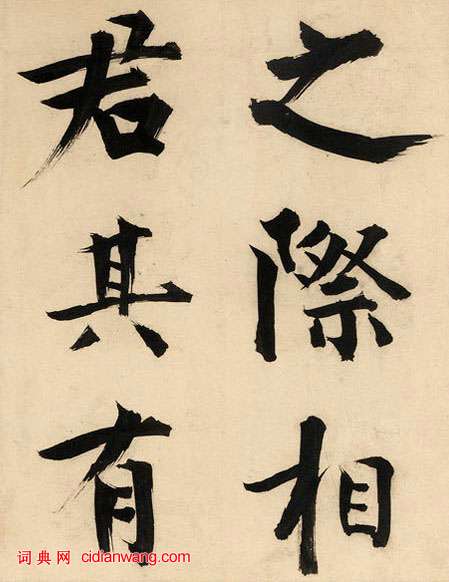 之際相
君其有
词典网 cidianwang.com